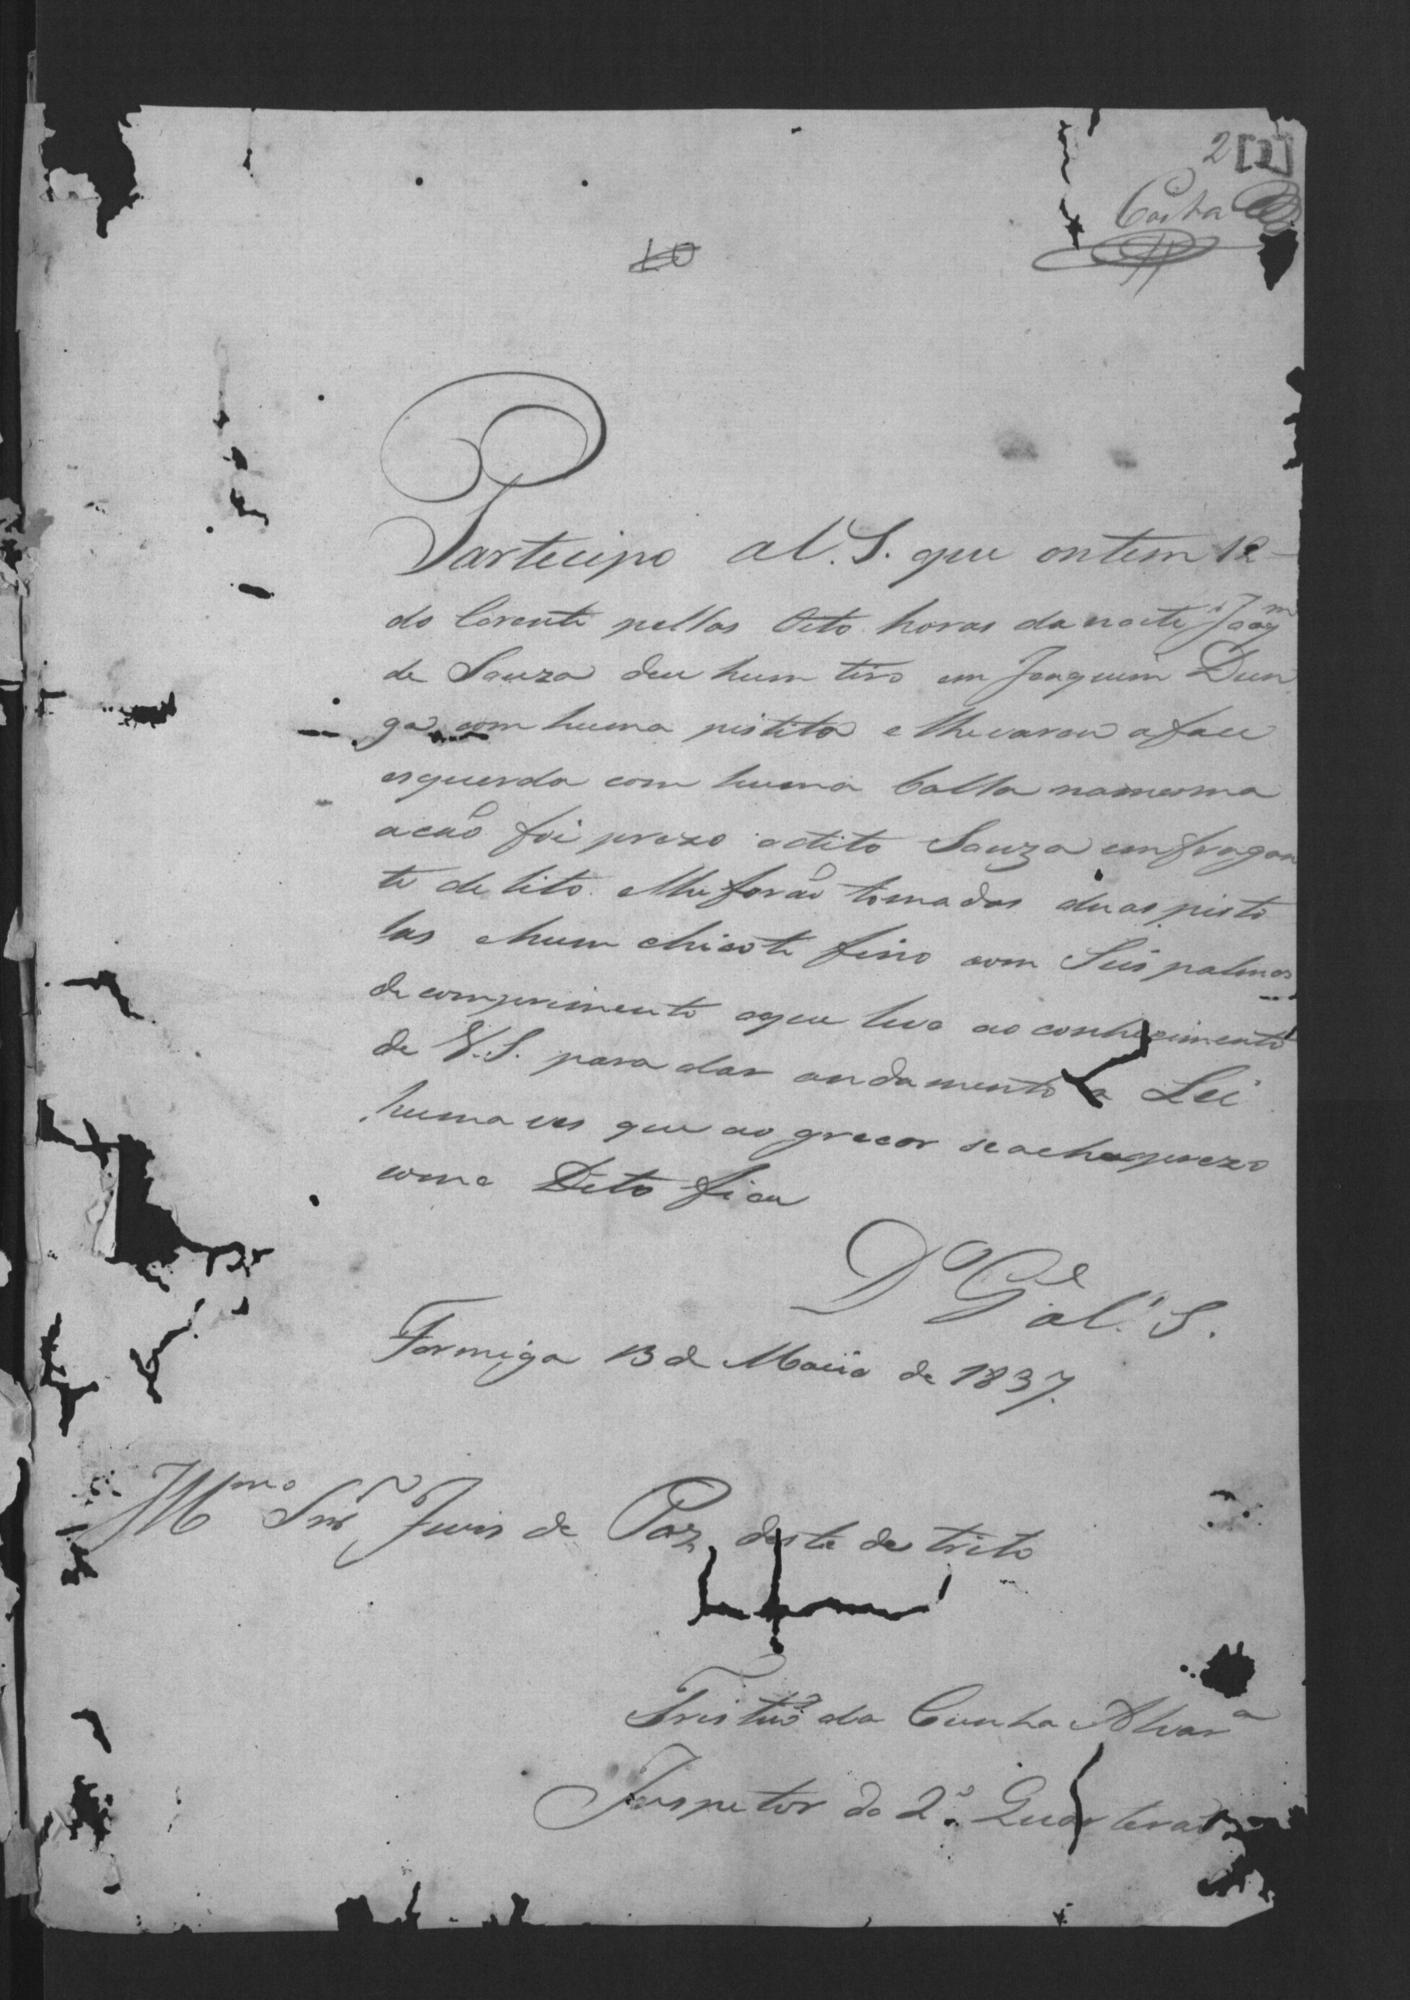 2 [2]
Costa
10
Partecipo a V. S. que ontem 12
do Corente pellas Oito horas da noite Joaqm
de Souza deu hum tiro em Joaquim Dun
ga com huma pistola e lhe varou a face
esquerda com huma balla na mesma
acaõ foi prezo o dito Souza em fragan
te delito e lhe foraõ tomadas duas pisto
las e hum chicote fino com Seis palmos
de comprimento o que levo ao conhecimento
de V. S. para dar andamento a Lei
huma ves que ao agreçor se acha prezo
como Dito fica
Ds Ge a V. S.
Formiga 13 de Maio de 1837.
Illmo Snr Juis de Paz deste destrito
Tristaõ da Cunha Alvara
Inspetor do 2o Quarteraõ